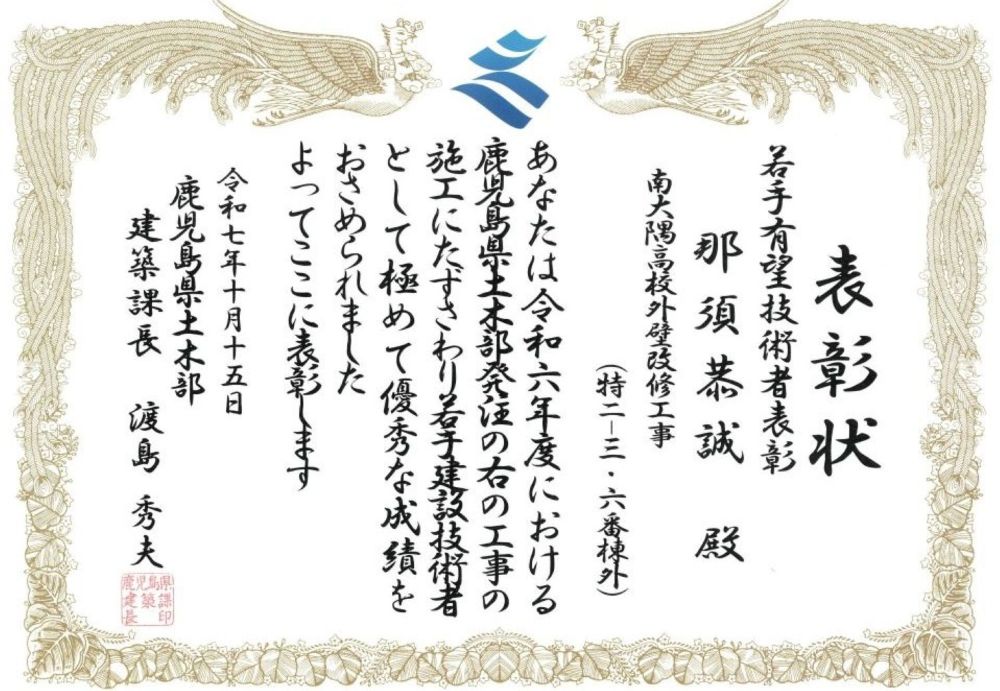 表彰状
若手有望技術者表彰
那須恭誠 殿
南大隅高校外壁改修工事
(特二-三・六番棟外)
あなたは令和六年度における
鹿児島県土木部発注の右の工事の
施工にたずさわり若手建設技術者
として極めて優秀な成績を
おさめられました
よってここに表彰します
令和七年十月十五日
鹿児島県土木部
建築課長 渡島 秀夫
鹿児島県
建築課
長印